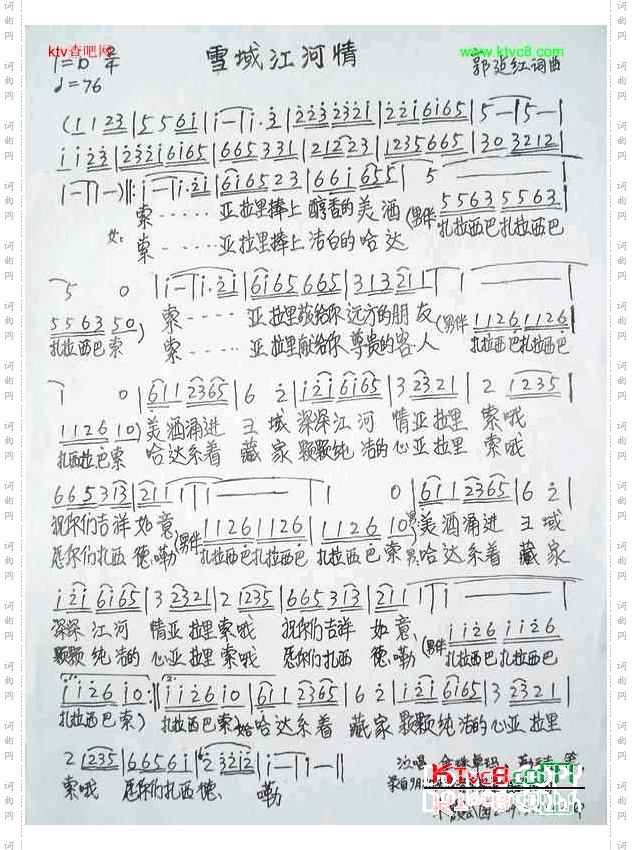 ktv查吧网
www.ktvc8.com
雪域江河情
郭延红词曲
♩=76
(1 1 2 3 | 5 5 6 i | i — | i · 3 | 2 2 3 2 3 2 i | 2 2 i 6 i 6 5 | 5 — | 5 — |
i i 2 3 | 2 3 2 i 6 i 6 5 | 6 6 5 3 3 1 | 2 1 2 2 3 | 1 2 3 5 6 6 5 | 3 0 3 2 1 2 |
1 — | 1 — ) ‖: i — | i · 2 i | 6 i 6 5 2 3 | 6 6 i 6 5 5 | 5 — — |
索 · · · · · 亚拉里捧上 醇香的美酒 (男伴 5 5 6 3 5 5 6 3
女: 索 · · · · · 亚拉里捧上 洁白的哈达 扎拉西巴扎拉西巴
5 0 | i — | i · 2 i | 6 i 6 5 6 6 5 | 3 1 3 2 1 1 | 1 — — |
5 5 6 3 5 0 ) 索 · · · · 亚拉里献给你 远方的朋友 (男伴 1 1 2 6 1 1 2 6
扎拉西巴 索 索 · · · · 亚拉里献给你 尊贵的客人 扎拉西巴扎拉西巴
1 0 | 6 1 1 2 3 6 5 | 6 2 | i 2 i 6 i 6 5 | 3 2 3 2 1 | 2 1 2 3 5 |
1 1 2 6 1 0 ) 美酒涌进 王域 深深江河 情亚拉里 索哦
扎西拉巴索 哈达系着 藏家 颗颗纯洁的心亚拉里 索哦
6 6 5 3 1 3 | 2 1 1 1 | 1 — — | 1 0 | 6 1 1 2 3 6 5 | 6 2 |
祝你们吉祥如意 (男伴 1 1 2 6 1 1 2 6 1 1 2 6 1 0 ) 美酒涌进 王域
愿你们扎西德勒 扎拉西巴扎拉西巴 扎拉西巴索 哈达系着 藏家
i 2 i 6 i 6 5 | 3 2 3 2 1 | 2 1 2 3 5 | 6 6 5 3 1 3 | 2 1 1 1 | 1 — |
深深江河 情亚拉里索哦 祝你们吉祥 如意 (男伴 i i 2 6 i i 2 6
颗颗纯洁的心亚拉里索哦 愿你们扎西 德勒 扎拉西巴扎拉西巴
i i 2 6 i 0 :‖ i i 2 6 i 0 | 6 i 1 2 3 6 5 | 6 2 | i 2 i 6 i 6 5 | 3 2 3 2 1 |
扎拉西巴索 ) 扎拉西巴索 哈达系着 藏家 颗颗纯洁的心亚拉里
2 1 2 3 5 | 6 6 5 6 i | 2 3 2 i 2 | i — | i — ‖
索哦 愿你们扎西德 勒
KTvc8.com
词曲网